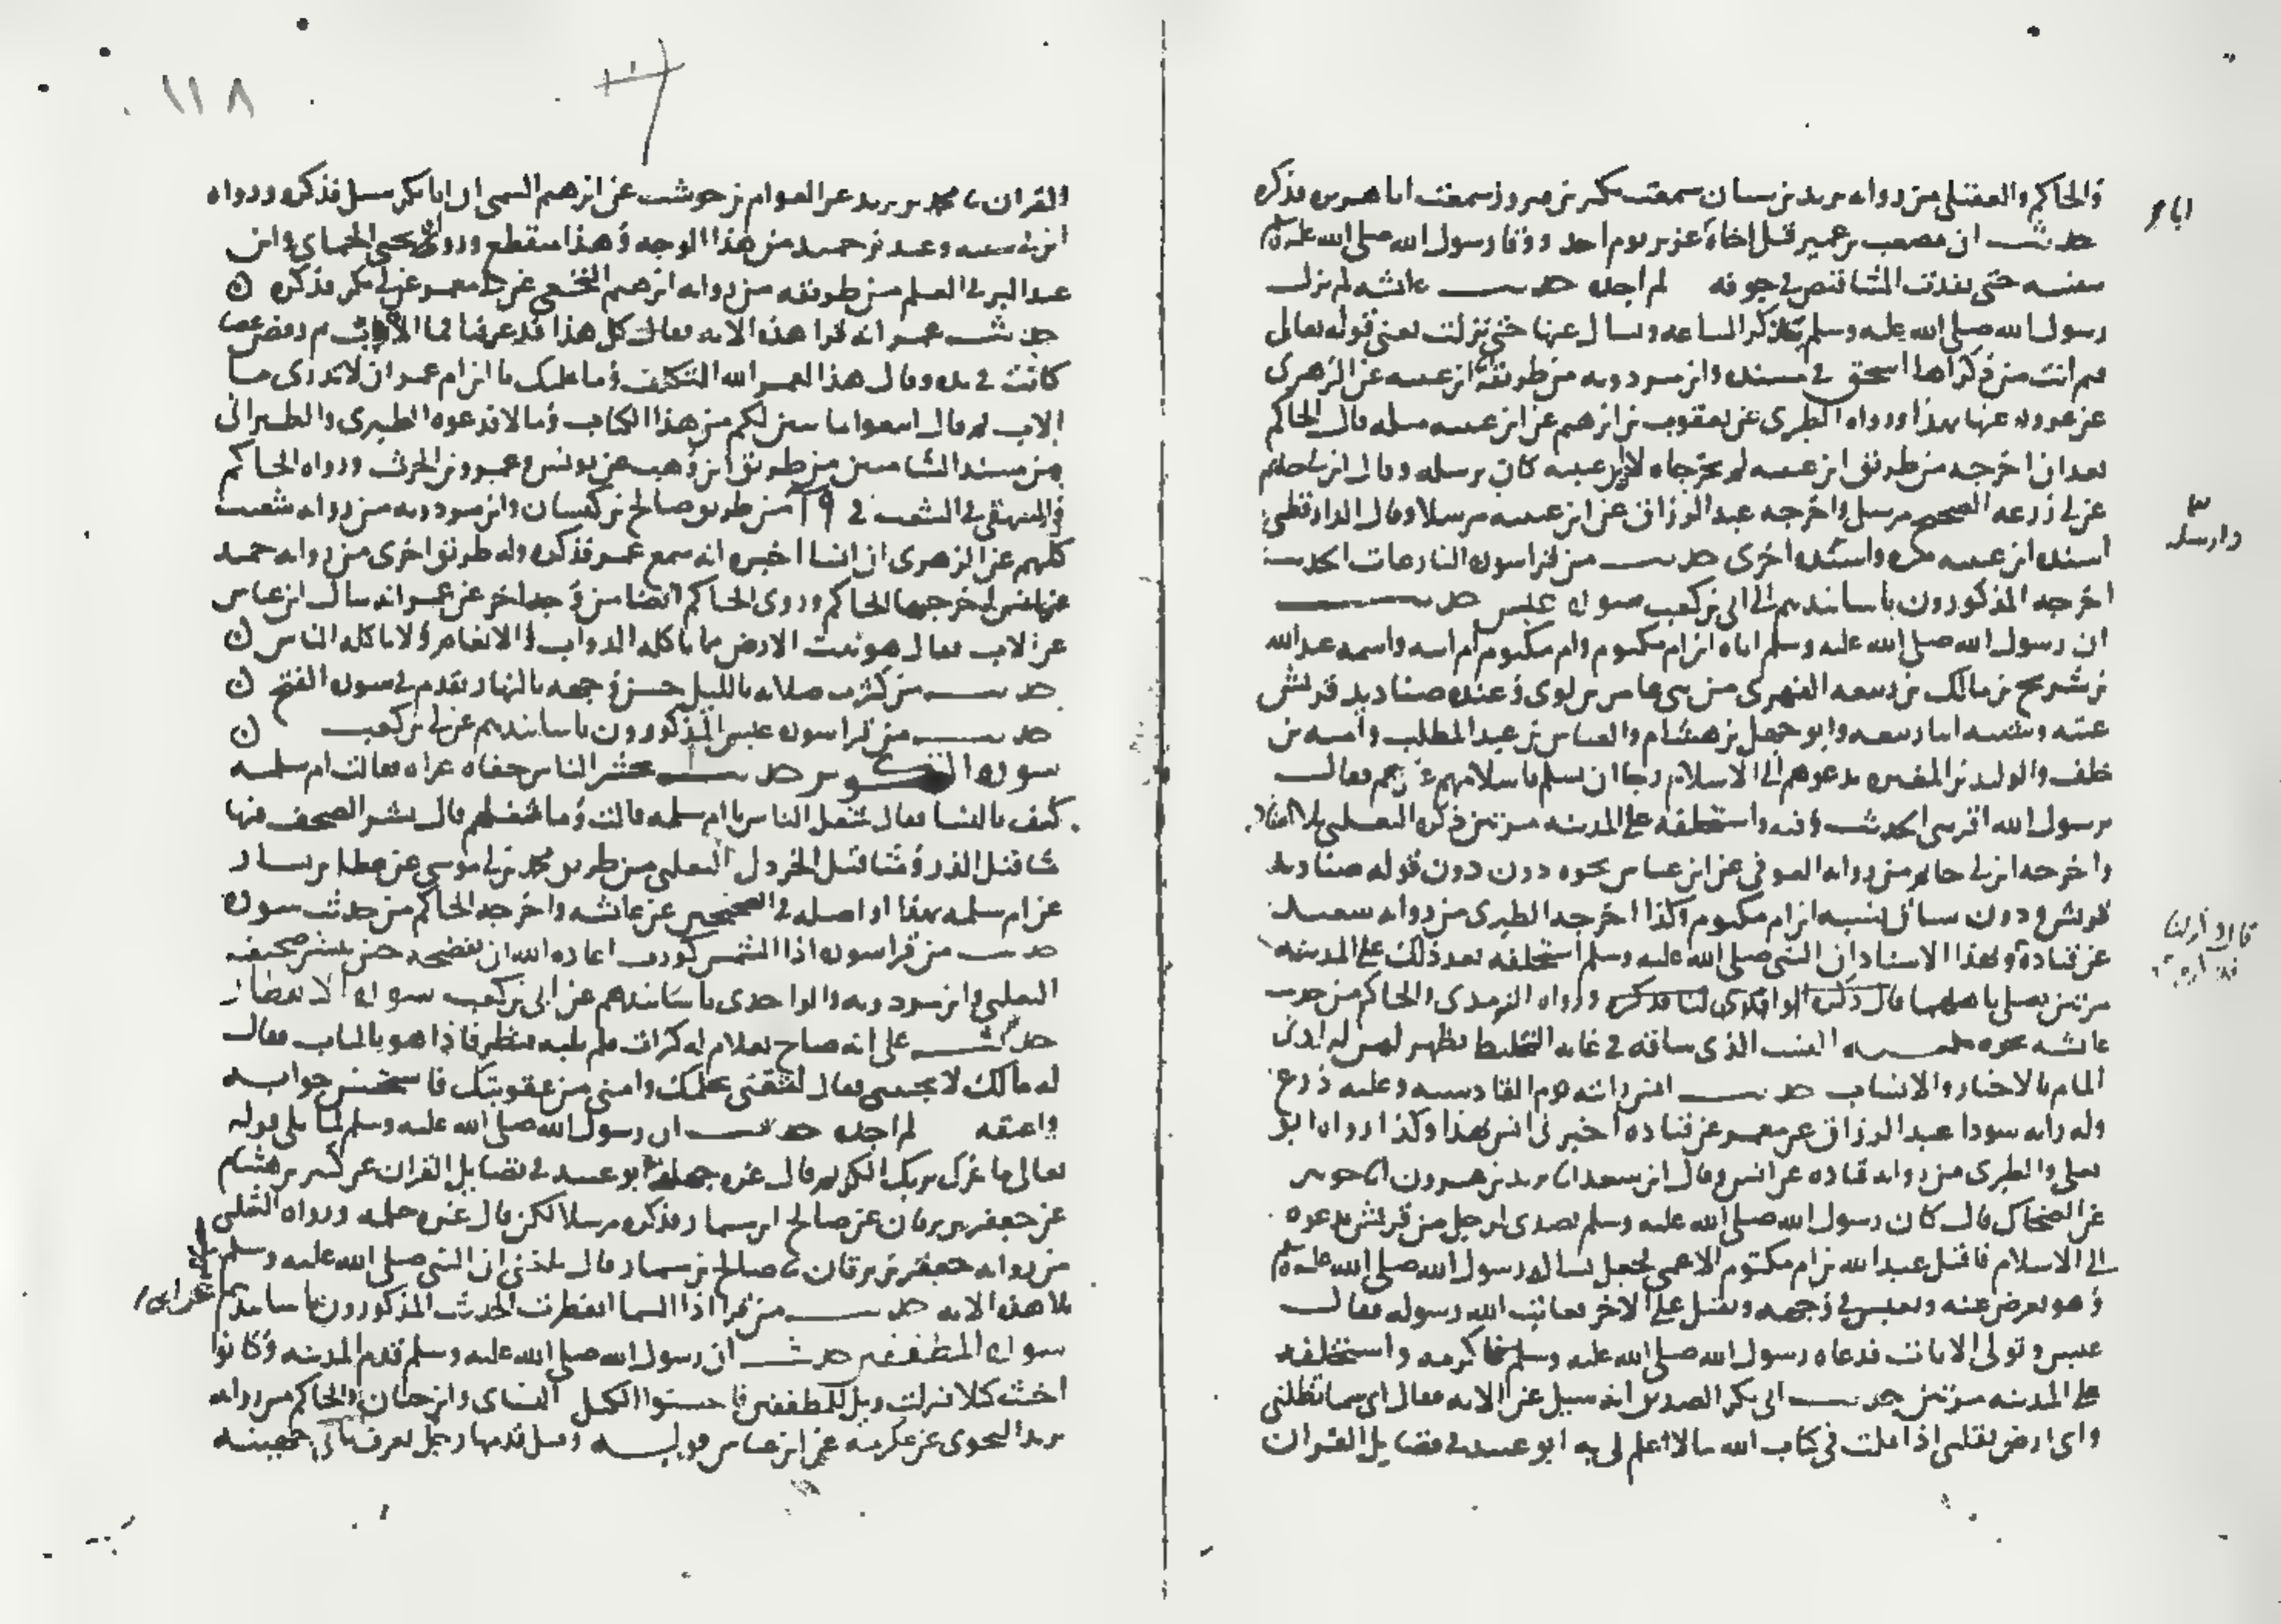 والحاكم والعقيلي من رواية يزيد بن سنان سمعت بكير بن فيروز سمعت ابا هريرة فذكره
حديث ان مصعب بن عمير قتل اخاه ابا عزيز يوم احد ووقا رسول الله صلى الله عليه وسلم
بنفسه حتى نفذت المشاقص في جوفه لم اجده حديث عائشة لم يزل
رسول الله صلى الله عليه وسلم يذكر الساعة ويسأل عنها حتى نزلت يعني قوله تعالى
فيم انت من ذكراها اسحق في مسنده وابن مردويه من طريقه ابن عيينه عن الزهري
عن عروه عنها بهذا ورواه الطبري عن يعقوب بن ابرهيم عن ابن عيينه مسله قال الحاكم
بعد ان اخرجه من طريق ابن عيينه لم يخرجاه لان ابن عيينه كان يرسله وقال ابن ابي حاتم
عن ابي زرعه الصحيح مرسل واخرجه عبد الرزاق عن ابن عيينه مرسلا وقال الدارقطني
اسنده ابن عيينه مره واسنده اخرى حديث من قرا سوره النازعات الحديث
اخرجه المذكورون باسانيدهم الى ابي بن كعب سورة عبس حديث
ان رسول الله صلى الله عليه وسلم اتاه ابن ام مكتوم وام مكتوم ام ابيه واسمه عبد الله
بن شريح بن مالك بن ربيعه الفهري من بني عامر بن لوي وعنده صناديد قريش
عتبه وشيبه ابنا ربيعه وابو جهل بن هشام والعباس بن عبد المطلب واميه بن
خلف والوليد بن المغيره يدعوهم الى الاسلام رجا ان يسلم باسلامهم غيرهم فقال
يرسول الله اقرىني الحديث وفيه واستخلفه على المدينه مرتين ذكره الثعلبي بلا اسناد
واخرجه ابن ابي حاتم من رواية العوفي عن ابن عباس نحوه دون دون قوله صناديد
قريش ودون سياق نسبه ابن ام مكتوم وكذا اخرجه الطبري من رواية سعيد
عن قتادة وبهذا الاسناد ان النبي صلى الله عليه وسلم استخلفه بعد ذلك على المدينه
مرتين يصلي باهلها قال ذكره الواقدي لنا فذكره ورواه الترمذي والحاكم من حديث
عائشه نحوه تنبيه النسب الذي ساقه في غايه التخليط يظهر لمن له ادنى
المام بالاخبار والانساب حديث انس رايته يوم القادسيه وعليه درع
وله رايه سودا عبد الرزاق عن معمر عن قتاده اخبرني انس بهذا وكذا رواه ابو
يعلى والطبري من رواية قتاده عن انس وقال ابن سعد انا يزيد بن هرون انا جويبر
عن الضحاك قال كان رسول الله صلى الله عليه وسلم تصدى لرجل من قريش يدعوه
الى الاسلام فاقبل عبد الله بن ام مكتوم الاعمى فجعل يسال رسول الله صلى الله عليه وسلم
وهو يعرض عنه ويعبس في وجهه ويقبل على الاخر فعاتب الله رسوله فقال
عبس وتولى الايات فدعاه رسول الله صلى الله عليه وسلم فاكرمه واستخلفه
على المدينه مرتين حديث ابي بكر الصديق انه سيل عن الابه فقال اي سما تظلني
واي ارض تقلني اذا قلت في كتاب الله ما لا اعلم لي به ابو عبيد في فضايل القران
ابا
وارسله
١١٨
القران ثنا محمد بن يزيد عن العوام بن حوشب عن ابرهيم التيمي ان ابا بكر سيل فذكره ورواه
ابن ابي شيبه وعبد بن حميد من هذا الوجه وهذا منقطع وروى يحيى الحماني وابن
عبد البر في العلم من طريقه من رواية ابرهيم النخعي عن ابي معمر عن ابي بكر فذكره
حديث عمر انه قرا هذه الايه فقال كل هذا قد عرفنا فما الاب ثم رفض عصا
كانت في يده وقال هذا لعمر الله التكلف وما عليك يا ابن ام عمر ان لا تدري ما
الاب ثم قال اتبعوا ما تبين لكم من هذا الكتاب وما لا فدعوه الطبري والطبراني
من مسند الشاميين من طريق ابن وهب عن يونس وعمرو بن الحرث ورواه الحاكم
والبيهقي في الشعب في ١٩ من طريق صالح بن كيسان وابن مردويه من رواية شعيب
كلهم عن الزهري ان انسا اخبره انه سمع عمر فذكره وله طريق اخرى من رواية حميد
عن انس اخرجها الحاكم وروى الحاكم ايضا من وجه اخر عن عمر انه سال ابن عباس
عن الاب فقال هو نبت الارض مما ياكله الدواب والانعام ولا ياكله الناس
حديث من كثرت صلاته بالليل حسن وجهه بالنهار تقدم في سورة الفتح
حديث من قرا سورة عبس المذكورون باسانيدهم عن ابي بن كعب
سورة التكوير حديث يحشر الناس حفاه عراه فقالت ام سلمه
كيف بالنسا فقال شغل الناس يا ام سلمه قالت وما شغلهم قال نشر الصحف فيها
مثاقيل الذر ومثاقيل الخردل الثعلبي من طريق محمد بن ابي موسى عن عطا بن يسار
عن ام سلمه بهذا واصله في الصحيحين عن عائشه واخرجه الحاكم من حديث سوده
حديث من قرا سوره اذا الشمس كورت اعاذه الله ان يفضحه حين ينشر صحيفته
الثعلبي وابن مردويه والواحدي باسانيدهم عن ابي بن كعب سورة الانفطار
حديث علي انه صاح بغلام له كرات فلم يلبه فنظر فاذا هو بالباب فقال
له مالك لا تجيبني فقال لثقتي بحلمك وامني من عقوبتك فاستحسن جوابه
واعتقه لم اجده حديث ان رسول الله صلى الله عليه وسلم لما تلى قوله
تعالى ما غرك بربك الكريم قال غره جهله ابو عبيد في فضايل القران عن كثير بن هشام
عن جعفر بن برقان عن صالح بن مسمار فذكره مرسلا لكن قال غره حلمه ورواه الثعلبي
من رواية جعفر بن برقان ثنا صالح بن مسمار قال بلغني ان النبي صلى الله عليه وسلم
تلا هذه الايه حديث من قرا اذا السما انفطرت الحديث المذكورون باسانيدهم عن ابي
سورة المطففين حديث ان رسول الله صلى الله عليه وسلم قدم المدينه وكانوا
اخبث كيلا فنزلت ويل للمطففين فاحسنوا الكيل النساى وابن حبان والحاكم من رواية
يزيد النحوي عن عكرمه عن ابن عباس قوله وقيل قدمها رجل يعرف بابي جهينه